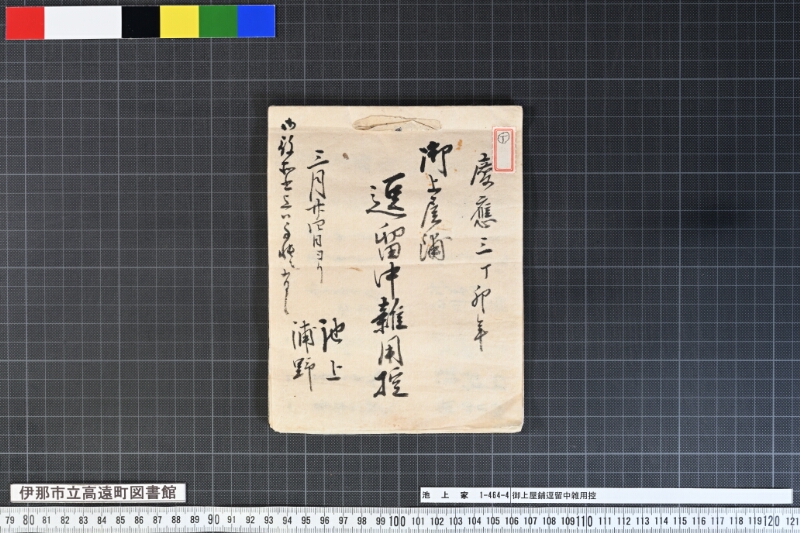 慶應三丁卯年
御上屋鋪
逗留中雜用控
三月廿四日ヨリ
池上
浦野
伊那市立高遠町図書館
池上家 1-464-4 御上屋鋪逗留中雑用控
79 80 81 82 83 84 85 86 87 88 89 90 91 92 93 94 95 96 97 98 99 100 101 102 103 104 105 106 107 108 109 110 111 112 113 114 115 116 117 118 119 120 121